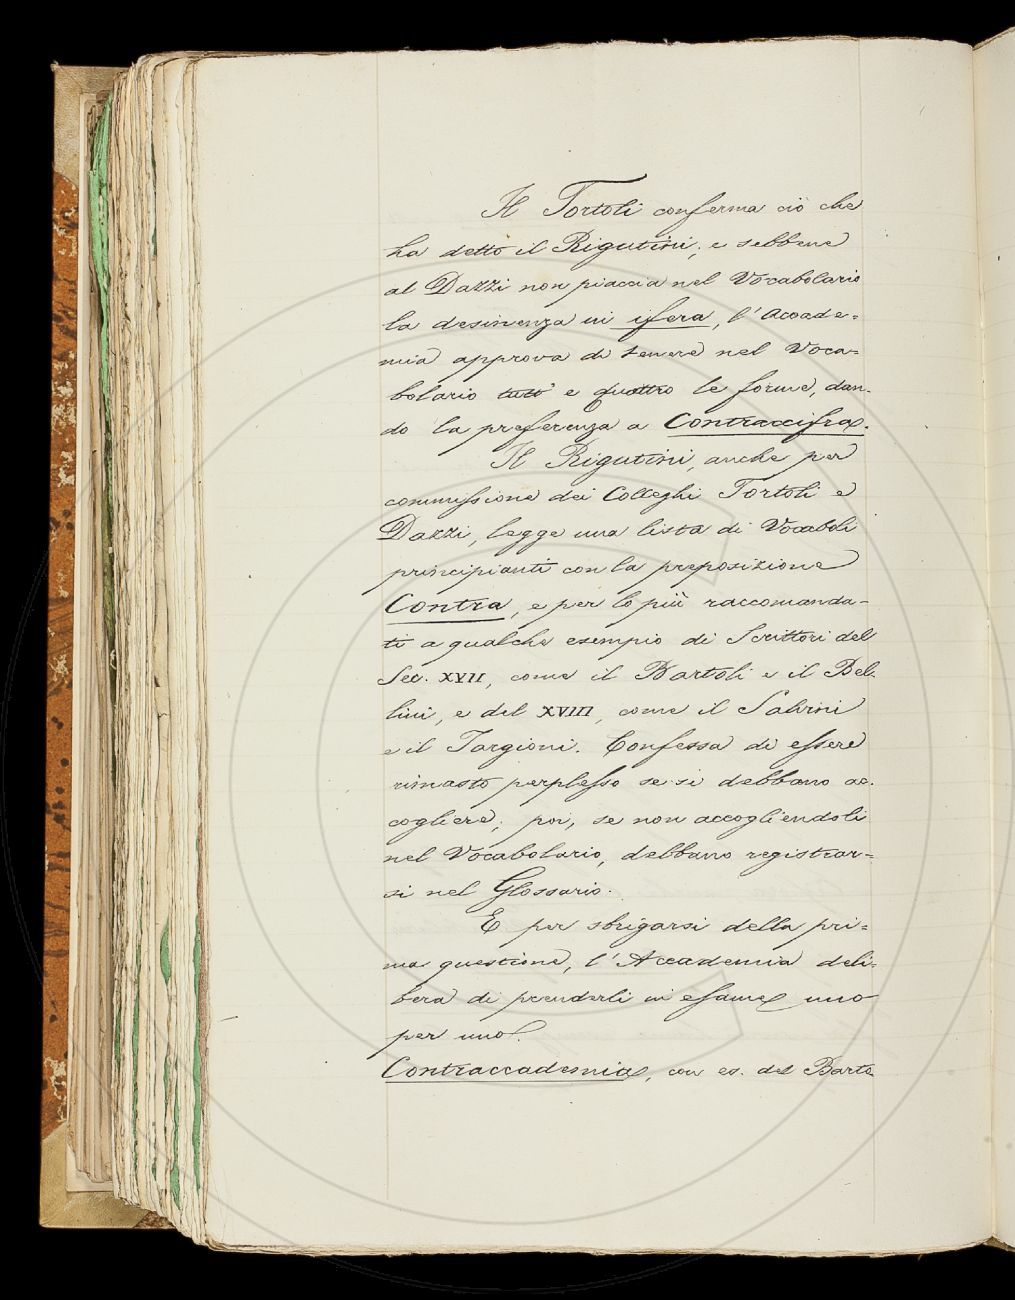 Il Tortoli conferma ciò che
ha detto il Rigutini; e sebbene
al Dazzi non piaccia nel Vocabolario
la desinenza in ifera, l'Accade=
mia approva di tenere nel Voca=
bolario tutt' e quattro le forme, dan-
do la preferenza a Contraccifra.
Il Rigutini, anche per
commissione dei Colleghi Tortoli e
Dazzi, legge una lista di Vocaboli
principianti con la preposizione
Contra, e per lo più raccomanda-
ti a qualche esempio di Scrittori del
Sec. XVII, come il Bartoli e il Bel-
lini, e del XVIII, come il Salvini
e il Targioni. Confessa di essere
rimasto perplesso se si debbano ac-
cogliere; poi, se non accogliendoli
nel Vocabolario, debbano registrar=
si nel Glossario.
E per sbrigarsi della pri=
ma questione, l'Accademia deli=
bera di prenderli in esame uno
per uno.
Contraccademia, con es. del Barto